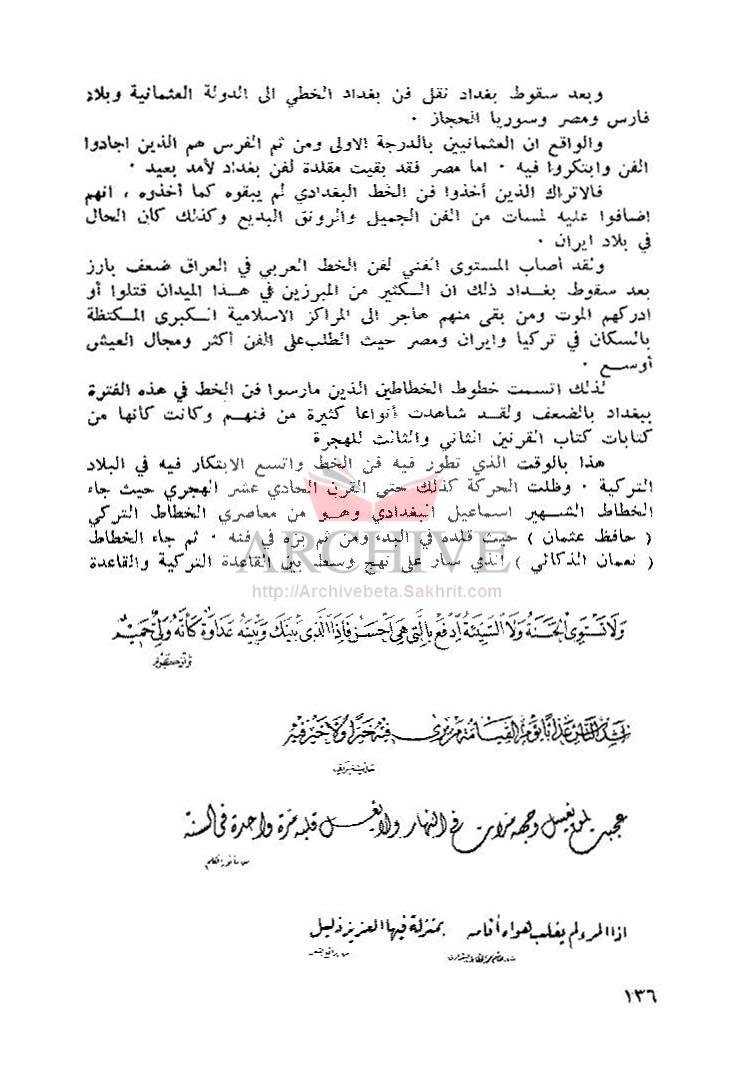 وبعد سقوط بغداد نقل فن بغداد الخطي الى الدولة العثمانية وبلاد
فارس ومصر وسوريا الحجاز ٠
والواقع ان العثمانيين بالدرجة الاولى ومن ثم الفرس هم الذين اجادوا
الفن وابتكروا فيه ٠ اما مصر فقد بقيت مقلدة لفن بغداد لأمد بعيد ٠
فالاتراك الذين أخذوا فن الخط البغدادي لم يبقوه كما أخذوه ، انهم
اضافوا عليه لمسات من الفن الجميل والرونق البديع وكذلك كان الحال
في بلاد ايران ٠
ولقد أصاب المستوى الفني لفن الخط العربي في العراق ضعف بارز
بعد سقوط بغداد ذلك ان الكثير من المبرزين في هذا الميدان قتلوا أو
ادركهم الموت ومن بقى منهم هاجر الى المراكز الاسلامية الكبرى المكتظة
بالسكان في تركيا وايران ومصر حيث الطلب على الفن أكثر ومجال العيش
أوسع ٠
لذلك اتسمت خطوط الخطاطين الذين مارسوا فن الخط في هذه الفترة
ببغداد بالضعف ولقد شاهدت أنواعا كثيرة من فنهم وكانت كأنها من
كتابات كتاب القرنين الثاني والثالث للهجرة
هذا بالوقت الذي تطور فيه فن الخط واتسع الابتكار فيه في البلاد
التركية ٠ وظلت الحركة كذلك حتى القرن الحادي عشر الهجري حيث جاء
الخطاط الشهير اسماعيل البغدادي وهو من معاصري الخطاط التركي
( حافظ عثمان ) حيث قلده في البدء ومن ثم بزه في فنه ٠ ثم جاء الخطاط
( نعمان الذكائي ) الذي سار على نهج وسط بين القاعدة التركية والقاعدة
ARCHIVE
http://Archivebeta.Sakhrit.com
وَلَا تَسْتَوِي الْحَسَنَةُ وَلَا السَّيِّئَةُ اِدْفَعْ بِالَّتِي هِيَ أَحْسَنُ فَإِذَا الَّذِي بَيْنَكَ وَبَيْنَهُ عَدَاوَةٌ كَأَنَّهُ وَلِيٌّ حَمِيمٌ
اشد الناس عذابا يوم القيامة من يرى فيه خيرا ولا خير فيه
عجبت لمن يغسل وجهه مرات في النهار ولا يغسل قلبه مرة واحدة في السنة
اذا المرء لم يغلب هواه أقامه بمنزلة فيها العزيز ذليل
١٣٦